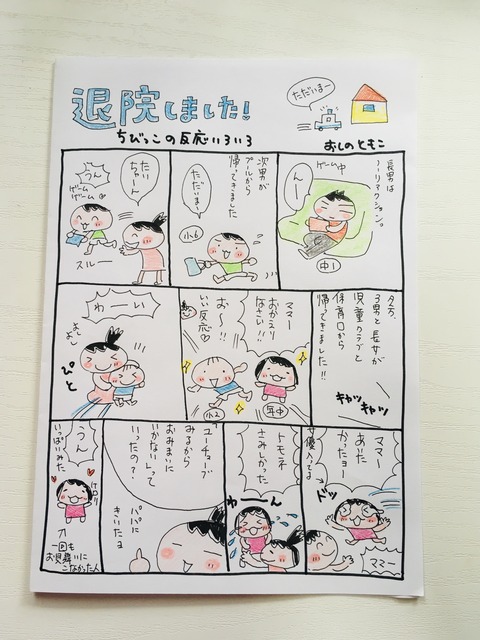 退院しました!
ただいまー
ちびっこの反応いろいろ
おしのともこ
長男は
ノーリアクション。
ゲーム中
んー
中1
次男が
プールから
帰ってきました
ただいま
小6
たい
ちゃーん
うん
ゲーム
ゲーム
スルー
夕方、
3男と長女が
児童クラブと
保育園から
帰ってきました!!
キャッ
キャッ
ママー
おかえり
なさい!!
お〜!!
いい反応♡
小2
年中
わーい
よし
よし
ぴと
ママー
あい
たかったヨー
ドッ
ママー
トモネ
さみしかった
わーん
ユーチューブ
みるから
おみまいに
いかない。って
いったの?
パパに
きいたヨ
うん
いっぱいみた
ケロリ
一回も
お見舞いに
こなかった人